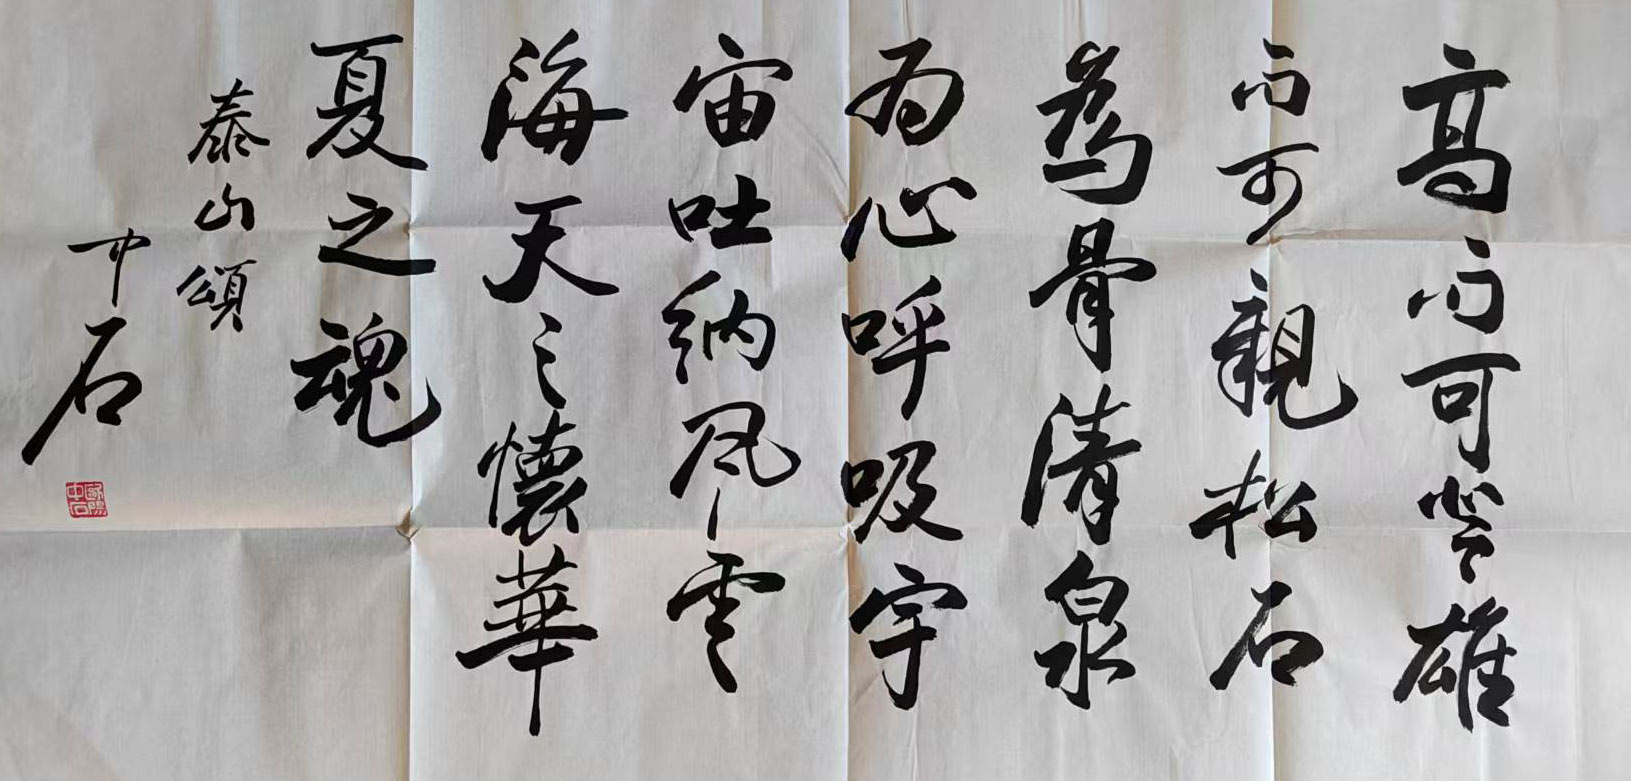 高而可登雄
而可親松石
為骨清泉
为心呼吸宇
宙吐納风雲
海天之懷華
夏之魂
泰山頌
中石
歐陽中石